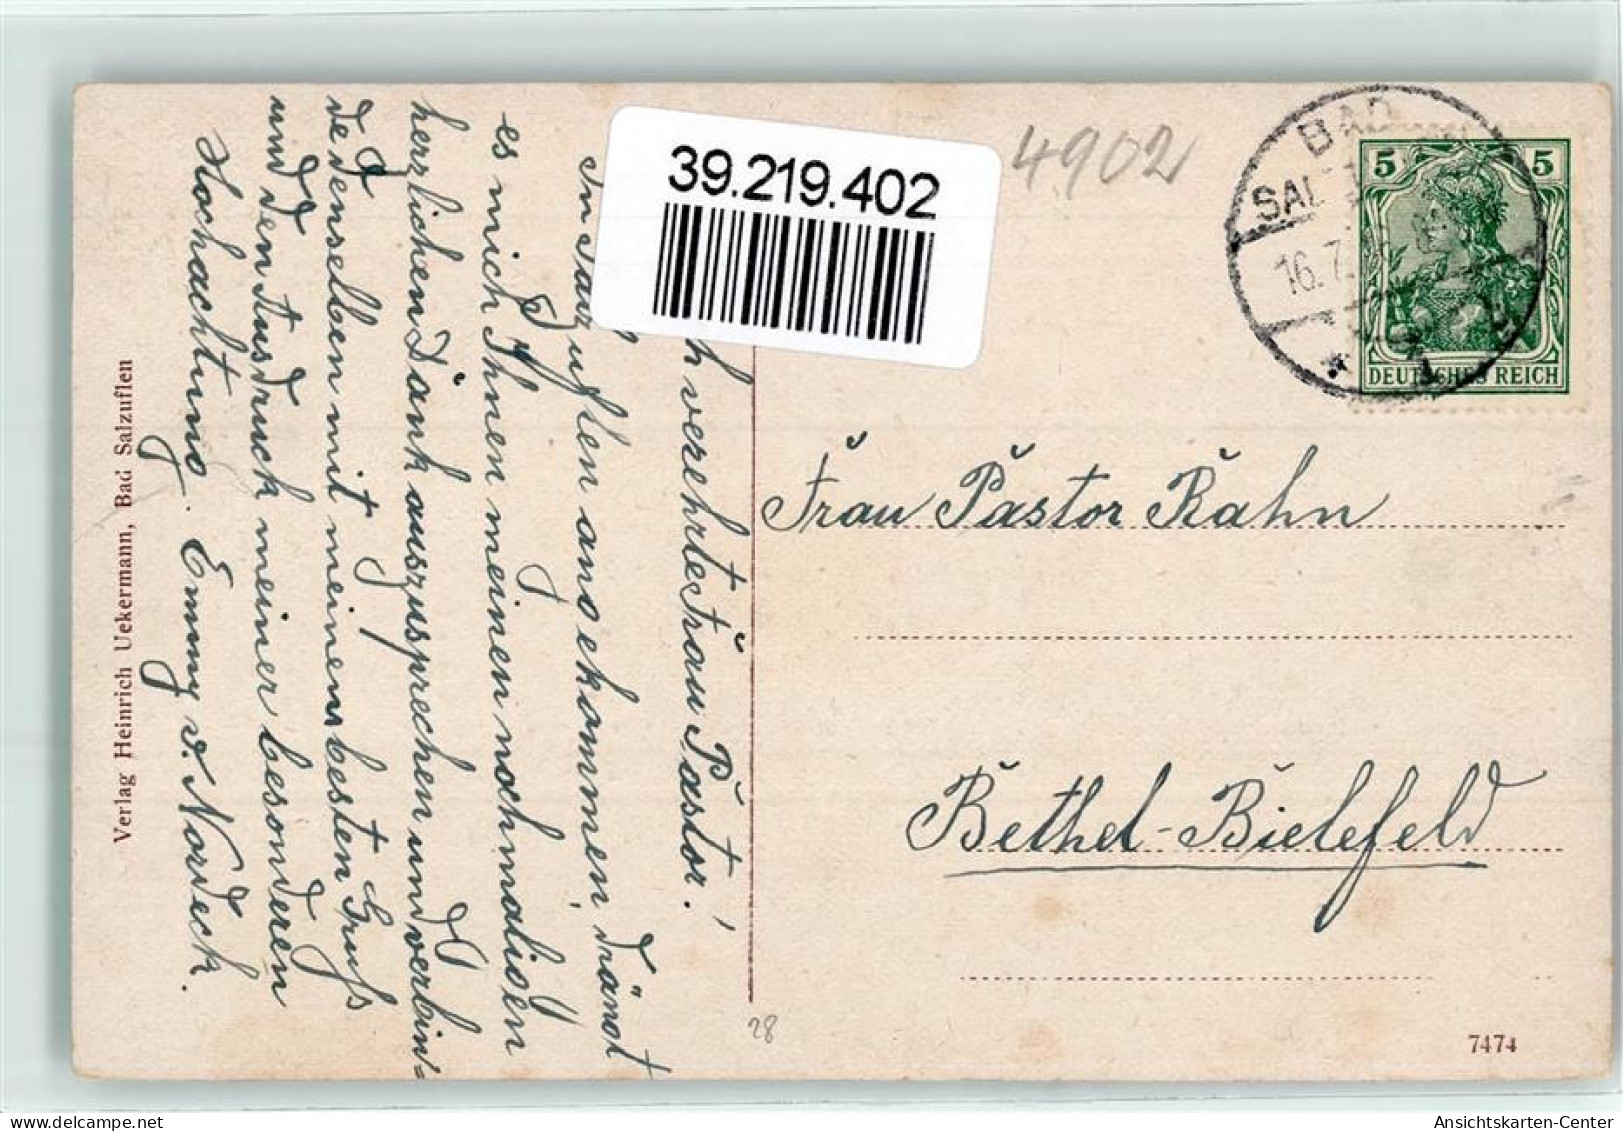 39.219.402
4902
BAD
SAL
16.7.
5 5
DEUTSCHES REICH
h verehrte Frau Pastor!
In Salzuflen angekommen, drängt
es mich Ihnen meinen nochmaligen
herzlichen Dank auszusprechen und verbin=
de denselben mit meinem besten Gruß
und den Ausdruck meiner besonderen
Hochachtung. Emmy v. Nordeck.
Verlag Heinrich Uekermann, Bad Salzuflen
Frau Pastor Rahn
Bethel-Bielefeld
28
7474
Ansichtskarten-Center